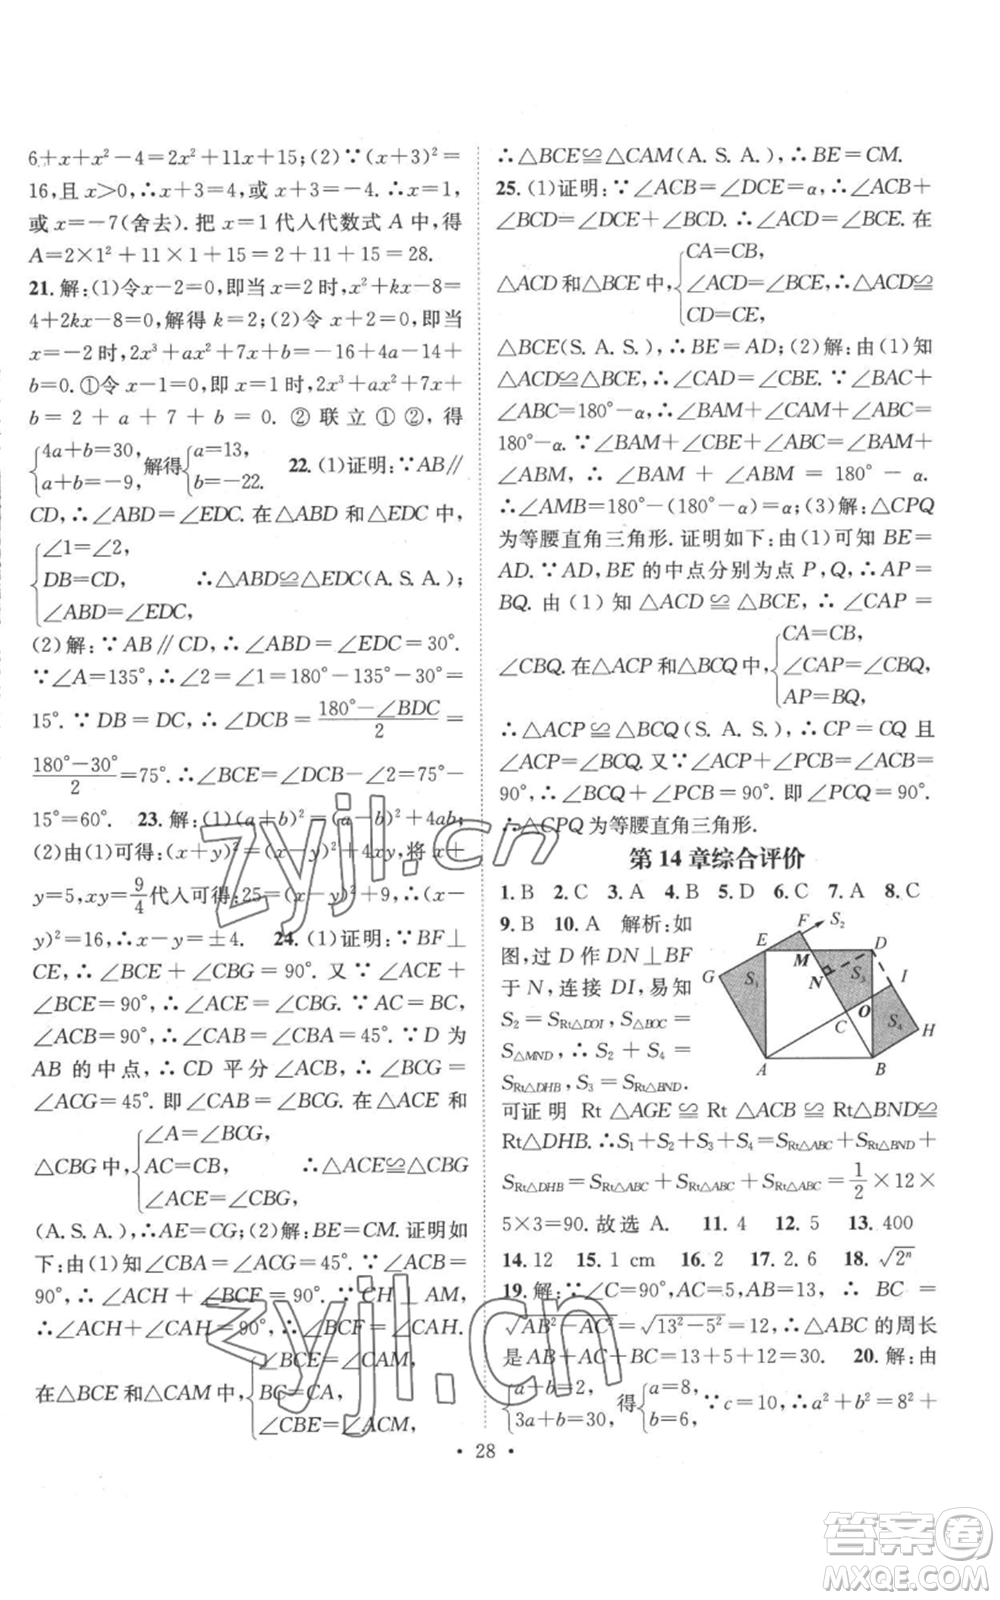 6+x+x²-4=2x²+11x+15;(2)∵(x+3)²=
16,且x>0,∴x+3=4,或x+3=-4.∴x=1,
或x=-7(舍去).把x=1代入代数式A中,得
A=2×1²+11×1+15=2+11+15=28.
21.解:(1)令x-2=0,即当x=2时,x²+kx-8=
4+2k-8=0,解得k=2;(2)令x+2=0,即当
x=-2时,2x³+ax²+7x+b=-16+4a-14+
b=0.①令x-1=0,即当x=1时,2x³+ax²+7x+
b=2+a+7+b=0.②联立①②,得
{4a+b=30, a+b=-9, 解得{a=13, b=-22. 22.(1)证明:∵AB∥
CD,∴∠ABD=∠EDC.在△ABD和△EDC中,
{∠1=∠2, DB=CD, ∠ABD=∠EDC, ∴△ABD≌△EDC(A.S.A.);
(2)解:∵AB∥CD,∴∠ABD=∠EDC=30°.
∵∠A=135°,∴∠2=∠1=180°-135°-30°=
15°.∵DB=DC,∴∠DCB=(180°-∠BDC)/2=
(180°-30°)/2=75°.∴∠BCE=∠DCB-∠2=75°-
15°=60°. 23.解:(1)(a+b)²=(a-b)²+4ab;
(2)由(1)可得:(x+y)²=(x-y)²+4xy.将x+
y=5,xy=9/4代入可得:25=(x-y)²+9.∴(x-
y)²=16,∴x-y=±4. 24.(1)证明:∵BF⊥
CE,∴∠BCE+∠CBG=90°.又∵∠ACE+
∠BCE=90°,∴∠ACE=∠CBG.∵AC=BC,
∠ACB=90°,∴∠A=∠CBA=45°.∵D为
AB的中点,∴CD平分∠ACB.∴∠BCG=
∠ACG=45°.即∠CAB=∠BCG.在△ACE和
△CBG中,{∠A=∠BCG, AC=CB, ∠ACE=∠CBG, ∴△ACE≌△CBG
(A.S.A.),∴AE=CG;(2)解:BE=CM.证明如
下:由(1)知∠CBA=∠CAB=45°.∵∠ACB=
90°,∴∠ACH+∠BCE=90°.∵CH⊥AM,
∴∠ACH+∠CAH=90°,∴∠BCE=∠CAH.
在△BCE和△CAM中,{∠BCE=∠CAM, BC=CA, ∠CBE=∠ACM,
∴△BCE≌△CAM(A.S.A.),∴BE=CM.
25.(1)证明:∵∠ACB=∠DCE=α,∴∠ACB+
∠BCD=∠DCE+∠BCD.∴∠ACD=∠BCE.在
△ACD和△BCE中,{CA=CB, ∠ACD=∠BCE, CD=CE, ∴△ACD≌
△BCE(S.A.S.),∴BE=AD;(2)解:由(1)知
△ACD≌△BCE,∴∠CAD=∠CBE.∵∠BAC+
∠ABC=180°-α,∴∠BAM+∠CAM+∠ABC=
180°-α.∴∠BAM+∠CBE+∠ABC=∠BAM+
∠ABM,∴∠BAM+∠ABM=180°-α.
∴∠AMB=180°-(180°-α)=α;(3)解:△CPQ
为等腰直角三角形.证明如下:由(1)可知BE=
AD.∵AD,BE的中点分别为点P,Q,∴AP=
BQ.由(1)知△ACD≌△BCE,∴∠CAP=
∠CBQ.在△ACP和△BCQ中,{CA=CB, ∠CAP=∠CBQ, AP=BQ,
∴△ACP≌△BCQ(S.A.S.),∴CP=CQ且
∠ACP=∠BCQ.又∵∠ACP+∠PCB=∠ACB=
90°,∴∠BCQ+∠PCB=90°.即∠PCQ=90°.
∴△CPQ为等腰直角三角形.
第14章综合评价
1.B 2.C 3.A 4.B 5.D 6.C 7.A 8.C
9.B 10.A 解析:如
图,过D作DN⊥BF
于N,连接DI,易知
S₂=S_Rt△DOI,S_△BOC=
S_△MND.∴S₂+S₄=
S_Rt△DHB,S₃=S_Rt△BND.
E F S₂ D G M N S₁ S₃ I C O S₄ H A B
可证明Rt△AGE≌Rt△ACB≌Rt△BND≌
Rt△DHB.∴S₁+S₂+S₃+S₄=S_Rt△ABC+S_Rt△BND+
S_Rt△DHB=S_Rt△ABC+S_Rt△ABC+S_Rt△ABC=1/2×12×
5×3=90.故选A. 11.4 12.5 13.400
14.12 15.1 cm 16.2 17.2.6 18.√2ⁿ
19.解:∵∠C=90°,AC=5,AB=13,∴BC=
√AB²-AC²=√13²-5²=12,∴△ABC的周长
是AB+AC+BC=13+5+12=30. 20.解:由
{a-b=2, 3a+b=30, 得{a=8, b=6, ∵c=10,∴a²+b²=8²+
·28·
zyjl.cn
zyjl.cn
答案圈
MXQE.COM